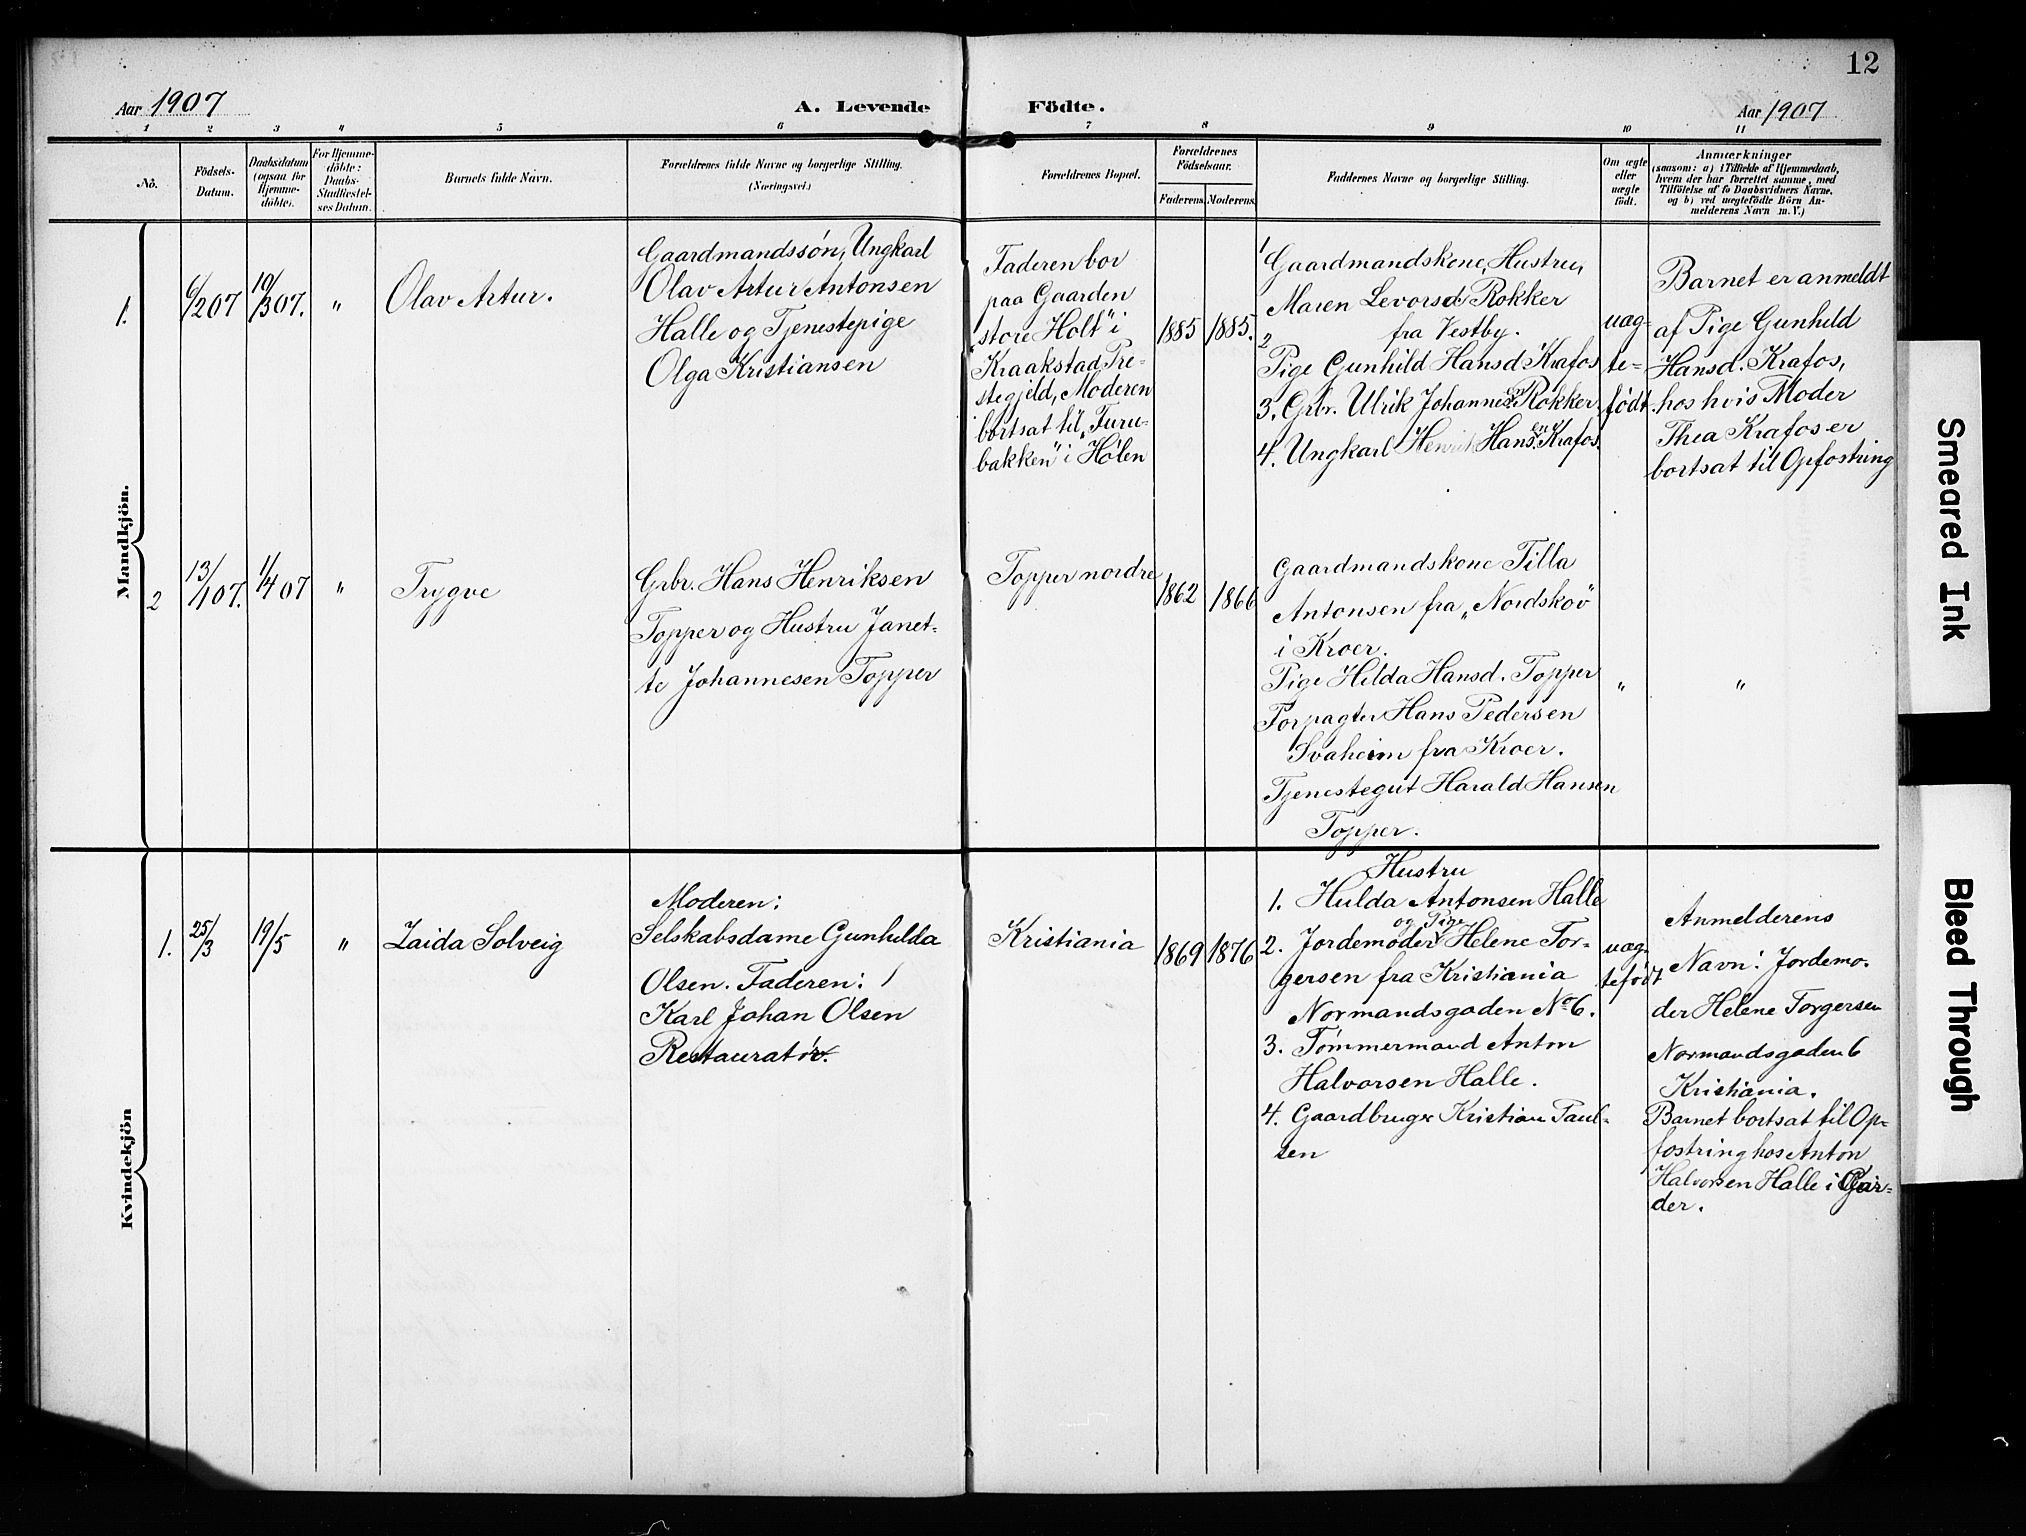 12
Aar 1907
A. Levende Födte.
Aar 1907
1 2 3 4 5 6 7 8 9 10 11
No.
Födsels-
Datum.
Daabsdatum
(ogsaa for
Hjemme-
döbte).
For Hjemme-
döbte:
Daabs-
Stadfæstel-
ses Datum.
Barnets fulde Navn.
Forældrenes fulde Navne og borgerlige Stilling.
(Næringsvei.)
Forældrenes Bopæl.
Forældrenes
Födselsaar.
Faderens. Moderens.
Faddernes Navne og borgerlige Stilling.
Om ægte
eller
uægte
födt.
Anmærkninger
(saasom: a) i Tilfælde af Hjemmedaab,
hvem der har forrettet samme, med
Tilföielse af to Daabsvidners Navne,
og b) ved uægtefödte Börn An-
melderens Navn m. V.)
Mandkjön.
1.
6/207
10/307.
"
Olav Artur.
Gaardmandssön, Ungkarl
Olav Artur Antonsen
Halle og Tjenestepige
Olga Kristiansen
Faderen bor
paa Gaarden
"store Holt" i
Kraakstad Pre-
stegjeld, Moderen
bortsat til "Furu-
bakken" i Hölen
1885
1885.
1 Gaardmandskone, Hustru,
Maren Levorsd. Rokker
fra Vestby.
2 Pige Gunhild Hansd Krafos
3. Grbr. Ulrik Johannesen Rokker
4. Ungkarl Henrik Hansen Krafos.
uæg-
te-
födt.
Barnet er anmeldt
af Pige Gunhild
Hansd. Krafos,
hos hvis Moder
Thea Krafos er
bortsat til Opfostring
2
13/107.
1/407
"
Trygve
Grbr. Hans Henriksen
Topper og Hustru Janet-
te Johannesen Topper
Topper nordre
1862
1866
Gaardmandskone Tilla
Antonsen fra "Nordskov"
i Kroer.
Pige Hilda Hansd. Topper
Forpagter Hans Pedersen
Svaheim fra Kroer.
Tjenestegut Harald Hansen
Topper.
"
"
Kvindekjön
1.
25/3
19/5
"
Zaida Solveig
Moderen:
Selskabsdame Gunhilda
Olsen. Faderen:
Karl Johan Olsen
Restauratör.
Kristiania
1869
1876
Hustru
1. Hulda Antonsen Halle
og Pige
2. Jordemoder Helene Tor-
gersen fra Kristiania
Normandsgaden No 6.
3. Tömmermand Anton
Halvorsen Halle.
4. Gaardbruger Kristian Paul-
sen
uæg-
tefödt
Anmelderens
Navn: Jordemo-
der Helene Torgersen
Normandsgaden 6
Kristiania.
Barnet bortsat til Op-
fostring hos Anton
Halvorsen Halle i Gar-
der.
Smeared Ink
Bleed Through